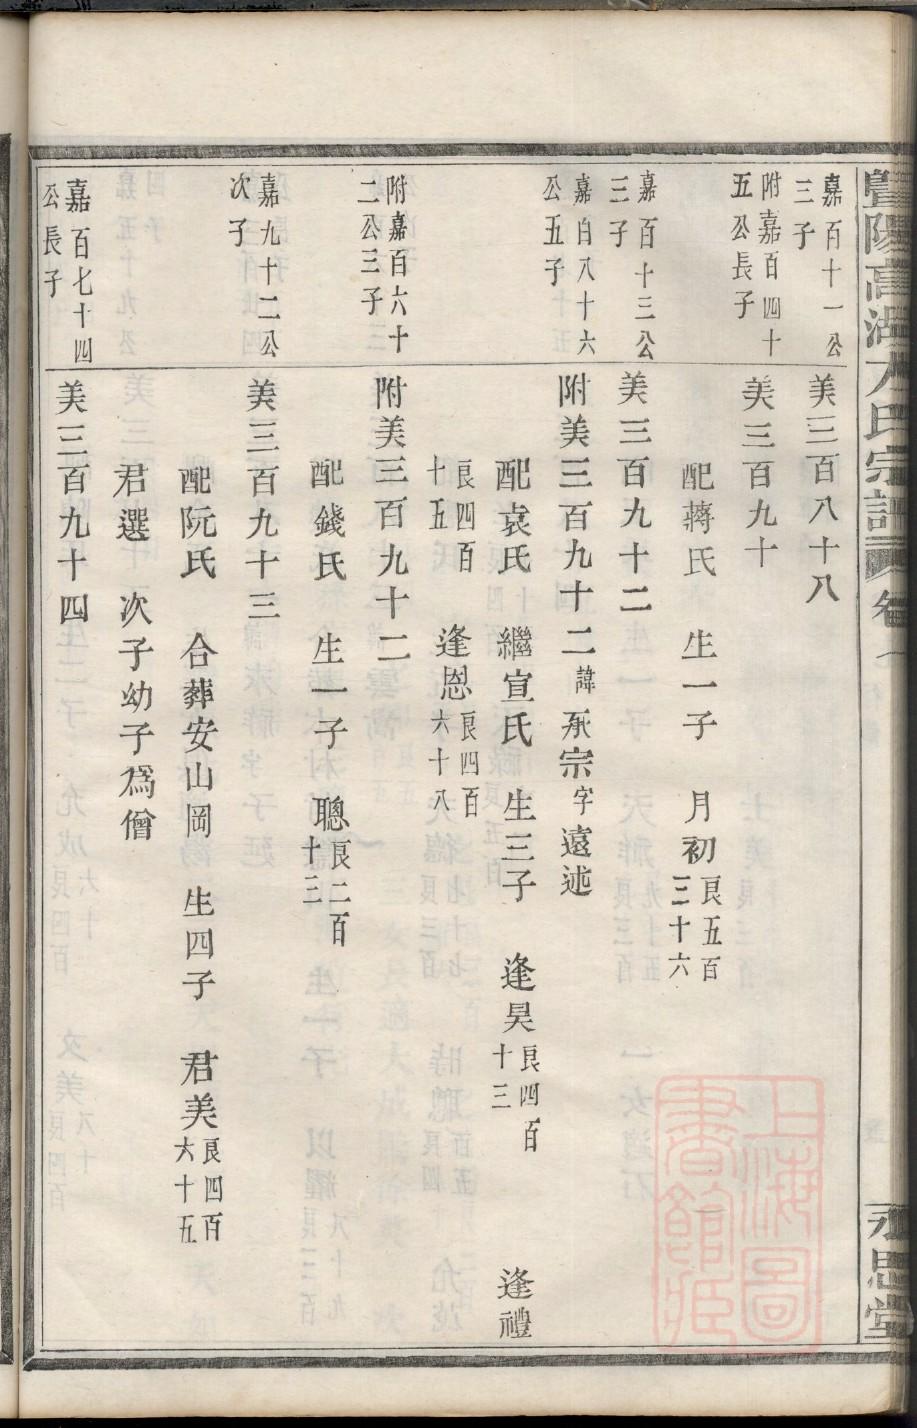 暨陽高湖氏宗譜 卷 永思堂
嘉百十一公三子 美三百八十八
附嘉百四十五公長子 美三百九十
配蔣氏 生一子 月初良五百三十六
嘉百十三公三子 美三百九十二
嘉白八十六公五子 附美三百九十二諱承宗字遠述
配袁氏 繼宣氏 生三子 逢昊良四百十三 逢禮
良四百十五 逢恩良四百六十八
附嘉百六十二公三子 附美三百九十二
配錢氏 生一子 聰良二百十三
嘉九十二公次子 美三百九十三
配阮氏 合葬安山岡 生四子 君美良四百六十五
君選 次子幼子爲僧
嘉百七十四公長子 美三百九十四